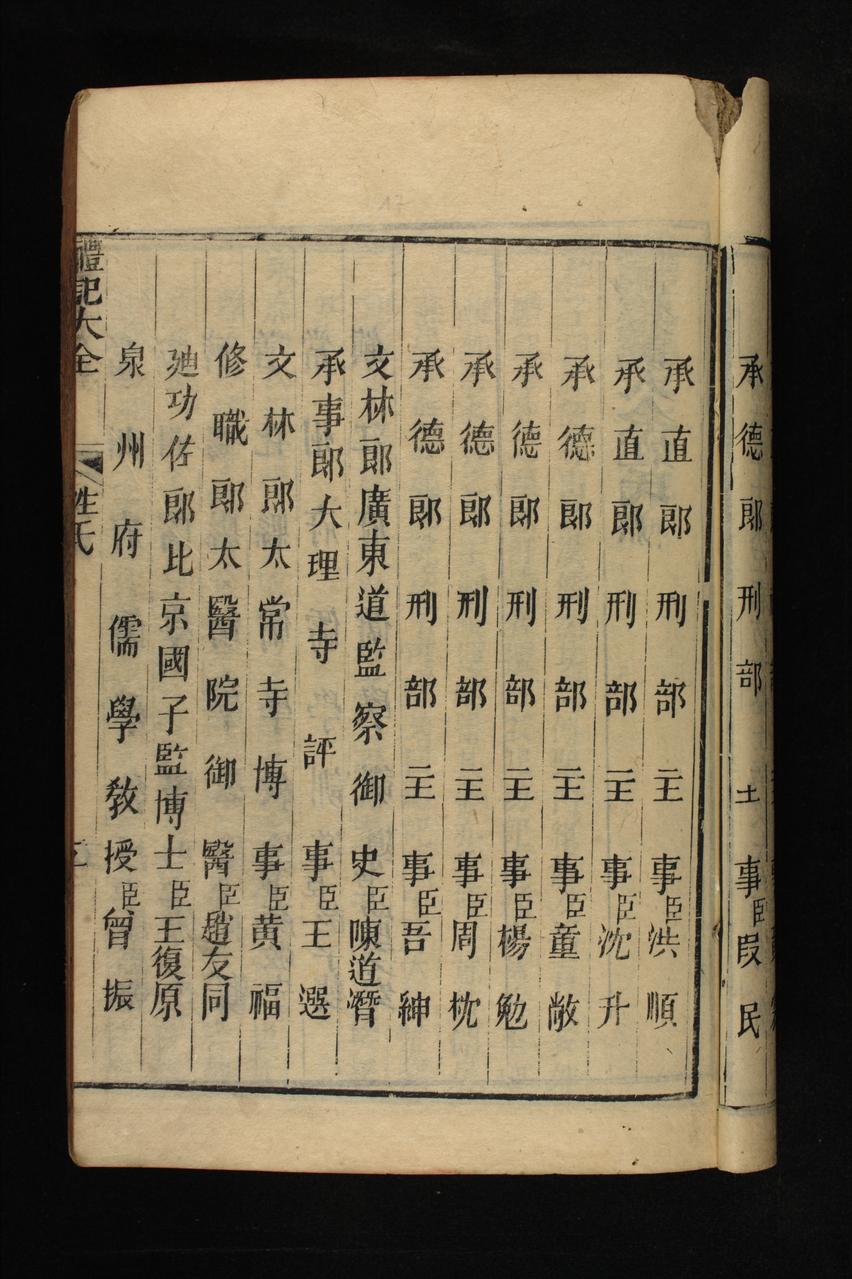 承德郎刑部主事臣葭民
承直郎刑部主事臣洪順
承直郎刑部主事臣沈升
承德郎刑部主事臣童敞
承德郎刑部主事臣楊勉
承德郎刑部主事臣周忱
承德郎刑部主事臣吾紳
文林郎廣東道監察御史臣陳道潛
承事郎大理寺評事臣王選
文林郎太常寺博事臣黃福
修職郎太醫院御醫臣趙友同
廸功佐郎北京國子監博士臣王復原
泉州府儒學教授臣曾振
禮記大全 姓氏